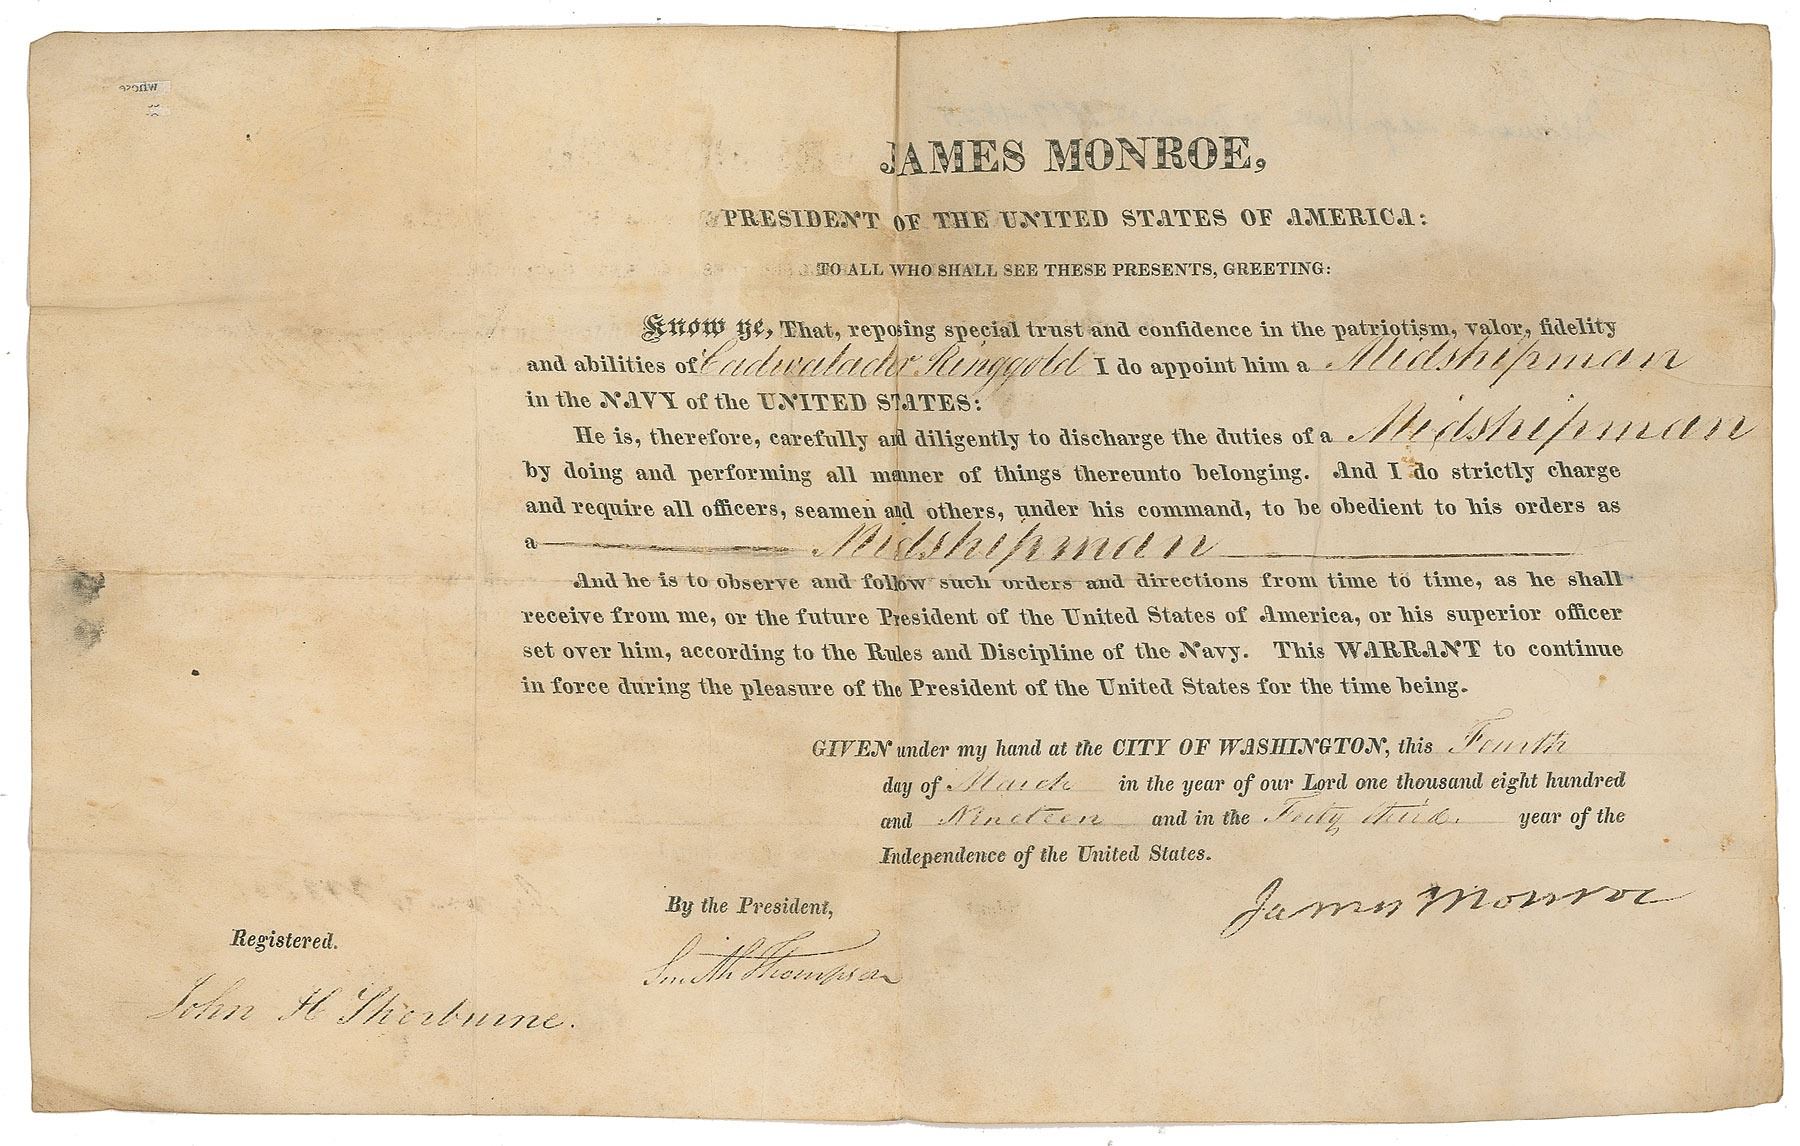 whose
JAMES MONROE,
PRESIDENT OF THE UNITED STATES OF AMERICA:
TO ALL WHO SHALL SEE THESE PRESENTS, GREETING:
Know ye, That, reposing special trust and confidence in the patriotism, valor, fidelity
and abilities of Cadwalader Ringgold I do appoint him a Midshipman
in the NAVY of the UNITED STATES:
He is, therefore, carefully and diligently to discharge the duties of a Midshipman
by doing and performing all manner of things thereunto belonging. And I do strictly charge
and require all officers, seamen and others, under his command, to be obedient to his orders as
a Midshipman
And he is to observe and follow such orders and directions from time to time, as he shall
receive from me, or the future President of the United States of America, or his superior officer
set over him, according to the Rules and Discipline of the Navy. This WARRANT to continue
in force during the pleasure of the President of the United States for the time being.
GIVEN under my hand at the CITY OF WASHINGTON, this Fourth
day of March in the year of our Lord one thousand eight hundred
and Nineteen and in the Forty third. year of the
Independence of the United States.
James Monroe
By the President,
Smith Thompson
Registered.
John H Sherburne.